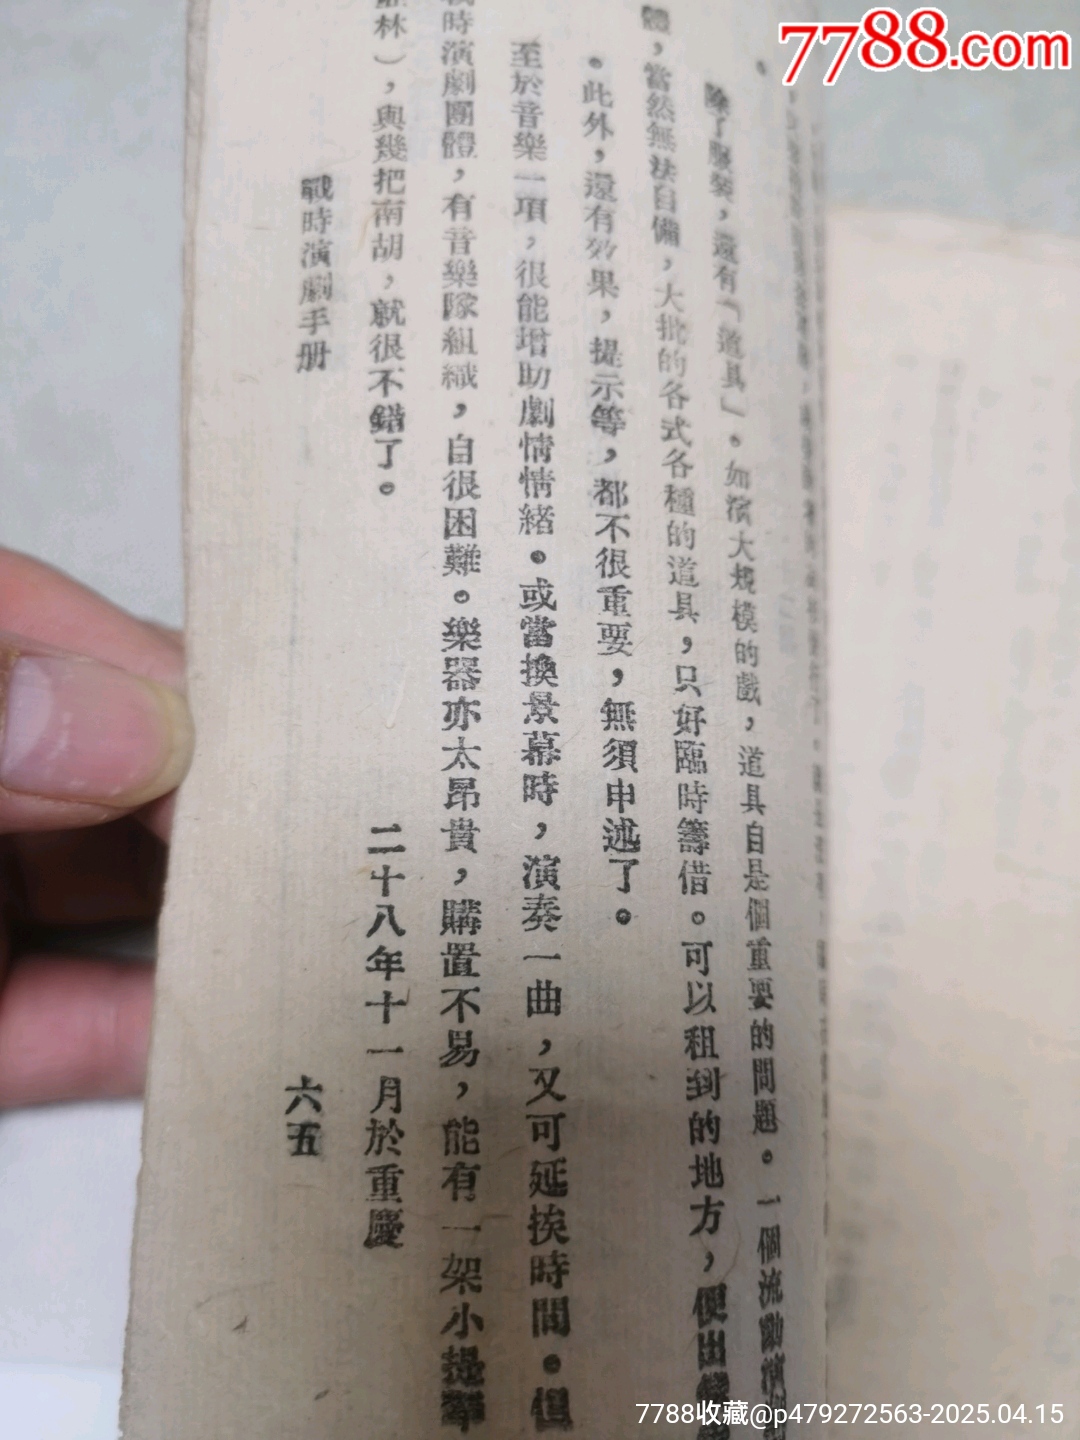 7788.com
除了服裝，還有「道具」。如演大規模的戲，道具自是個重要的問題。一個流動演劇
體，當然無法自備，大批的各式各種的道具，只好臨時籌借。可以租到的地方，便出
。此外，還有效果，提示等，都不很重要，無須申述了。
至於音樂一項，很能增助劇情情緒。或當換景幕時，演奏一曲，又可延挨時間。但
戰時演劇團體，有音樂隊組織，自很困難。樂器亦太昂貴，購置不易，能有一架小提琴
林），與幾把南胡，就很不錯了。
二十八年十一月於重慶
戰時演劇手册
六五
7788收藏@p479272563-2025.04.15